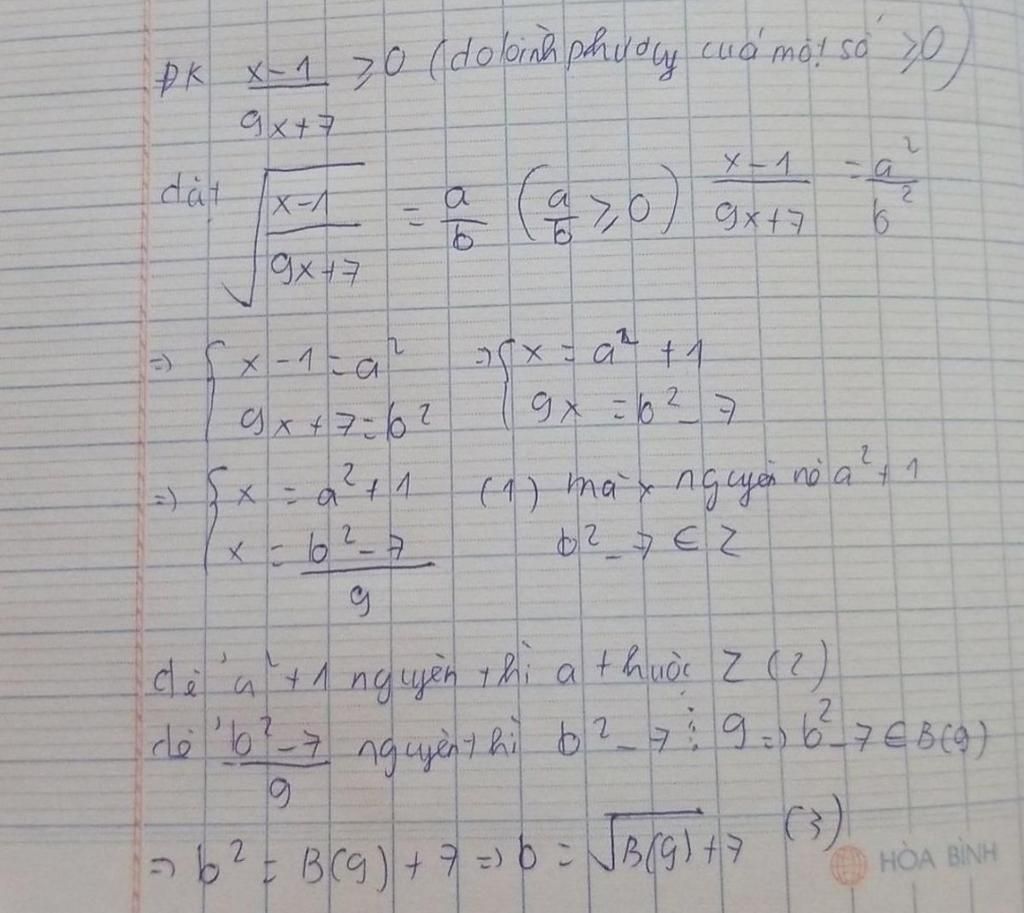 ĐK x-1/9x+7 ≥0 (do bình phương của một số ≥0)
đặt √(x-1/9x+7) = a/b (a/b ≥0) x-1/9x+7 = a²/b²
=> { x-1=a² => { x = a²+1
9x+7=b² 9x = b²-7
=> { x = a²+1 (1) mà x nguyên nê a²+1
x = b²-7/9 b²-7 ∈ Z
để a²+1 nguyên thì a thuộc Z (2)
để b²-7/9 nguyên thì b²-7 ⋮ 9 => b²-7 ∈ B(9)
=> b² = B(9) + 7 => b = √B(9)+7 (3)
HÒA BÌNH